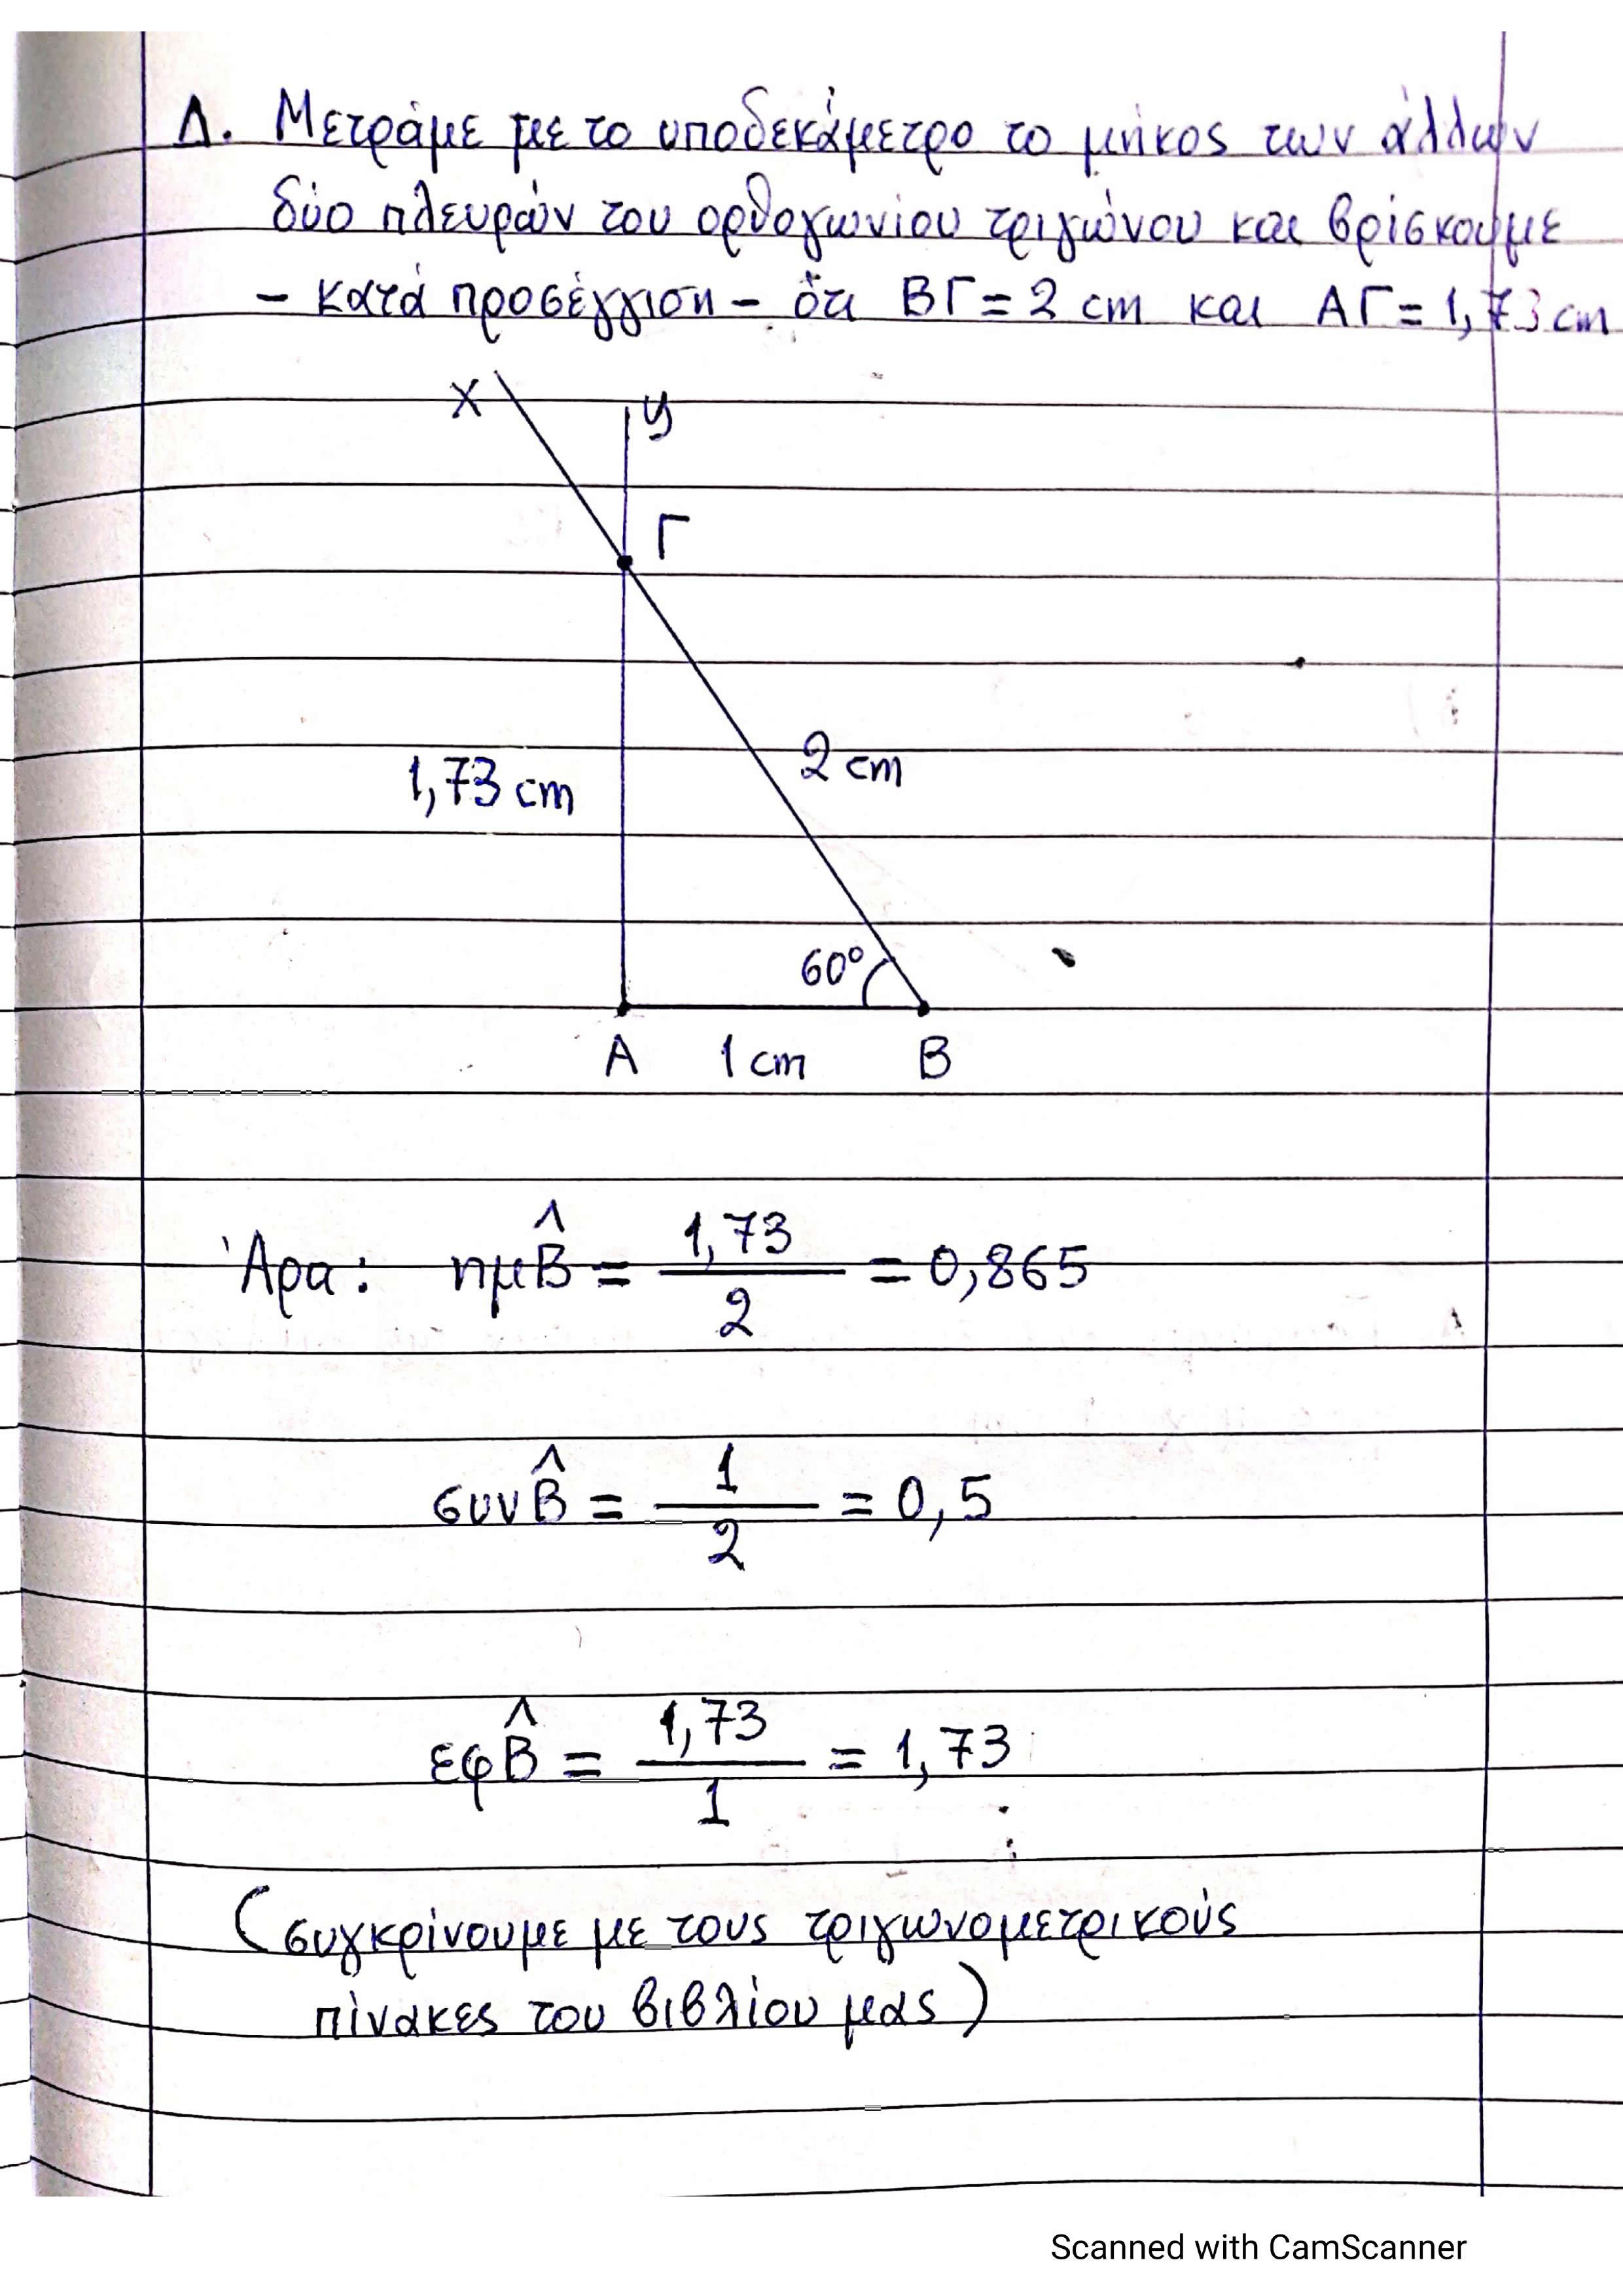 Δ. Μετράμε με το υποδεκάμετρο το μήκος των άλλων
δύο πλευρών του ορθογωνίου τριγώνου και βρίσκουμε
- κατά προσέγγιση - ότι ΒΓ = 2 cm και ΑΓ = 1,73 cm
x y
Γ
1,73 cm 2 cm
60°
Α 1 cm Β
Άρα: ημB̂ = 1,73/2 = 0,865
συνB̂ = 1/2 = 0,5
εφB̂ = 1,73/1 = 1,73
(συγκρίνουμε με τους τριγωνομετρικούς
πίνακες του βιβλίου μας)
Scanned with CamScanner